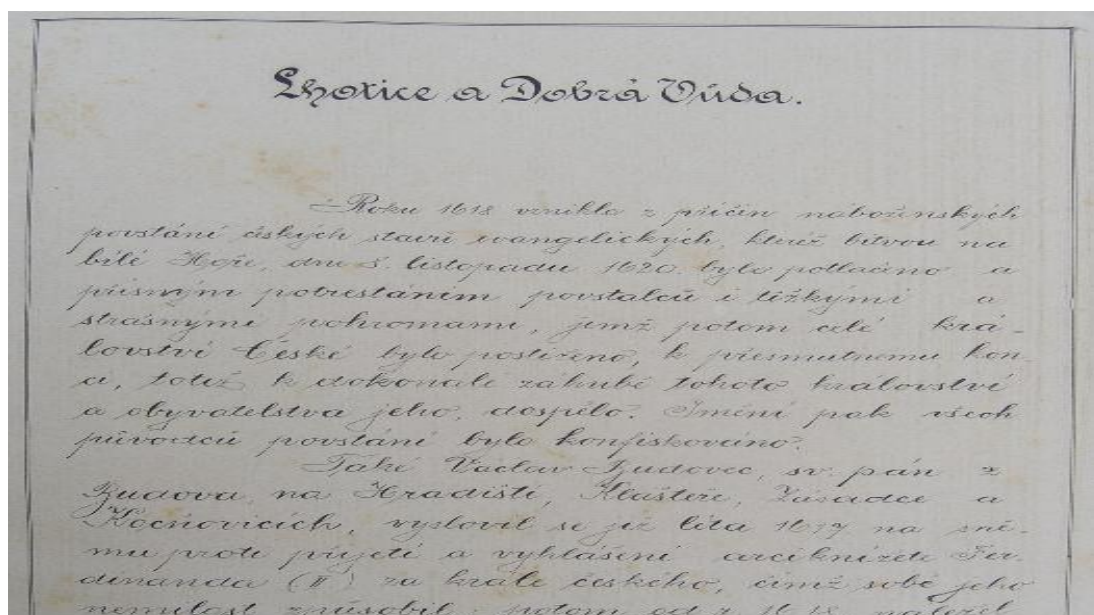 Lhotice a Dobrá Vůda.
Roku 1618 vznikla z příčin náboženských
povstání českých stavů evangelických, kteréž bitvou na
bílé Hoře, dne 8. listopadu 1620. bylo potlačeno a
přísným potrestáním povstalců i těžkými a
strašnými pohromami, jimž potom celé krá-
lovství České bylo postiženo, k přesmutnému kon-
ci, totiž k dokonalé záhubě tohoto království
a obyvatelstva jeho, dospělo. Jmění pak všech
původců povstání bylo konfiskováno.
Také Václav Budovec, sv. pán z
Budova, na Hradišti, Klášteře, Zásadce a
Kocňovicích, vyslovil se již léta 1617 na sně-
mu proti přijetí a vyhlášení arciknížete Fer-
dinanda (II) za krále českého, čímž sobě jeho
nemilost způsobil; potom od r. 1618 náležel